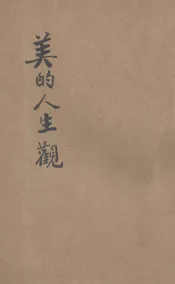 美的人生觀